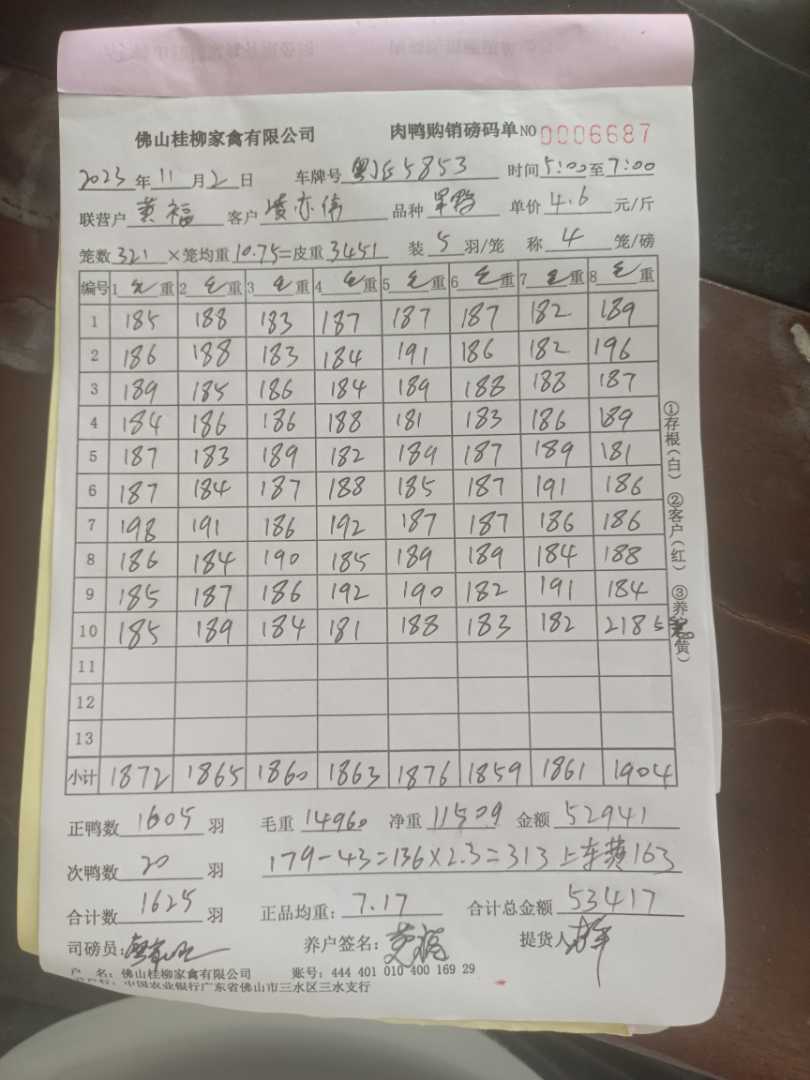 佛山桂柳家禽有限公司 肉鸭购销磅码单 NO 0006687
2023年11月2日 车牌号 5853 时间5:00至7:00
联营户 黄福 客户 凌亦伟 品种 单价 4.6 元/斤
笼数 321 ×笼均重 10.75=皮重 3451 装 5 羽/笼 称 4 笼/磅
编号 1 毛重 2 毛重 3 毛重 4 毛重 5 毛重 6 毛重 7 毛重 8 毛重
1 185 188 183 187 187 187 182 189
2 186 188 183 184 191 186 182 196
3 189 185 186 184 189 188 188 187
4 184 186 186 188 181 183 186 189
5 187 183 189 182 189 187 189 181
6 187 184 187 188 185 187 191 186
7 198 191 186 192 187 187 186 186
8 186 184 190 185 189 189 184 188
9 185 187 186 192 190 182 191 184
10 185 189 184 181 188 183 182 218 5笼
11
12
13
小计 1872 1865 1860 1863 1876 1859 1861 1904
①存根(白) ②客户(红) ③养户(黄)
正鸭数 1605 羽 毛重 14960 净重 11509 金额 52941
次鸭数 20 羽 179-43=136×2.3=313 上车费163
合计数 1625 羽 正品均重: 7.17 合计总金额 53417
司磅员: 养户签名: 黄福 提货人
户 名: 佛山桂柳家禽有限公司 账号: 444 401 010 400 169 29
中国农业银行广东省佛山市三水区三水支行